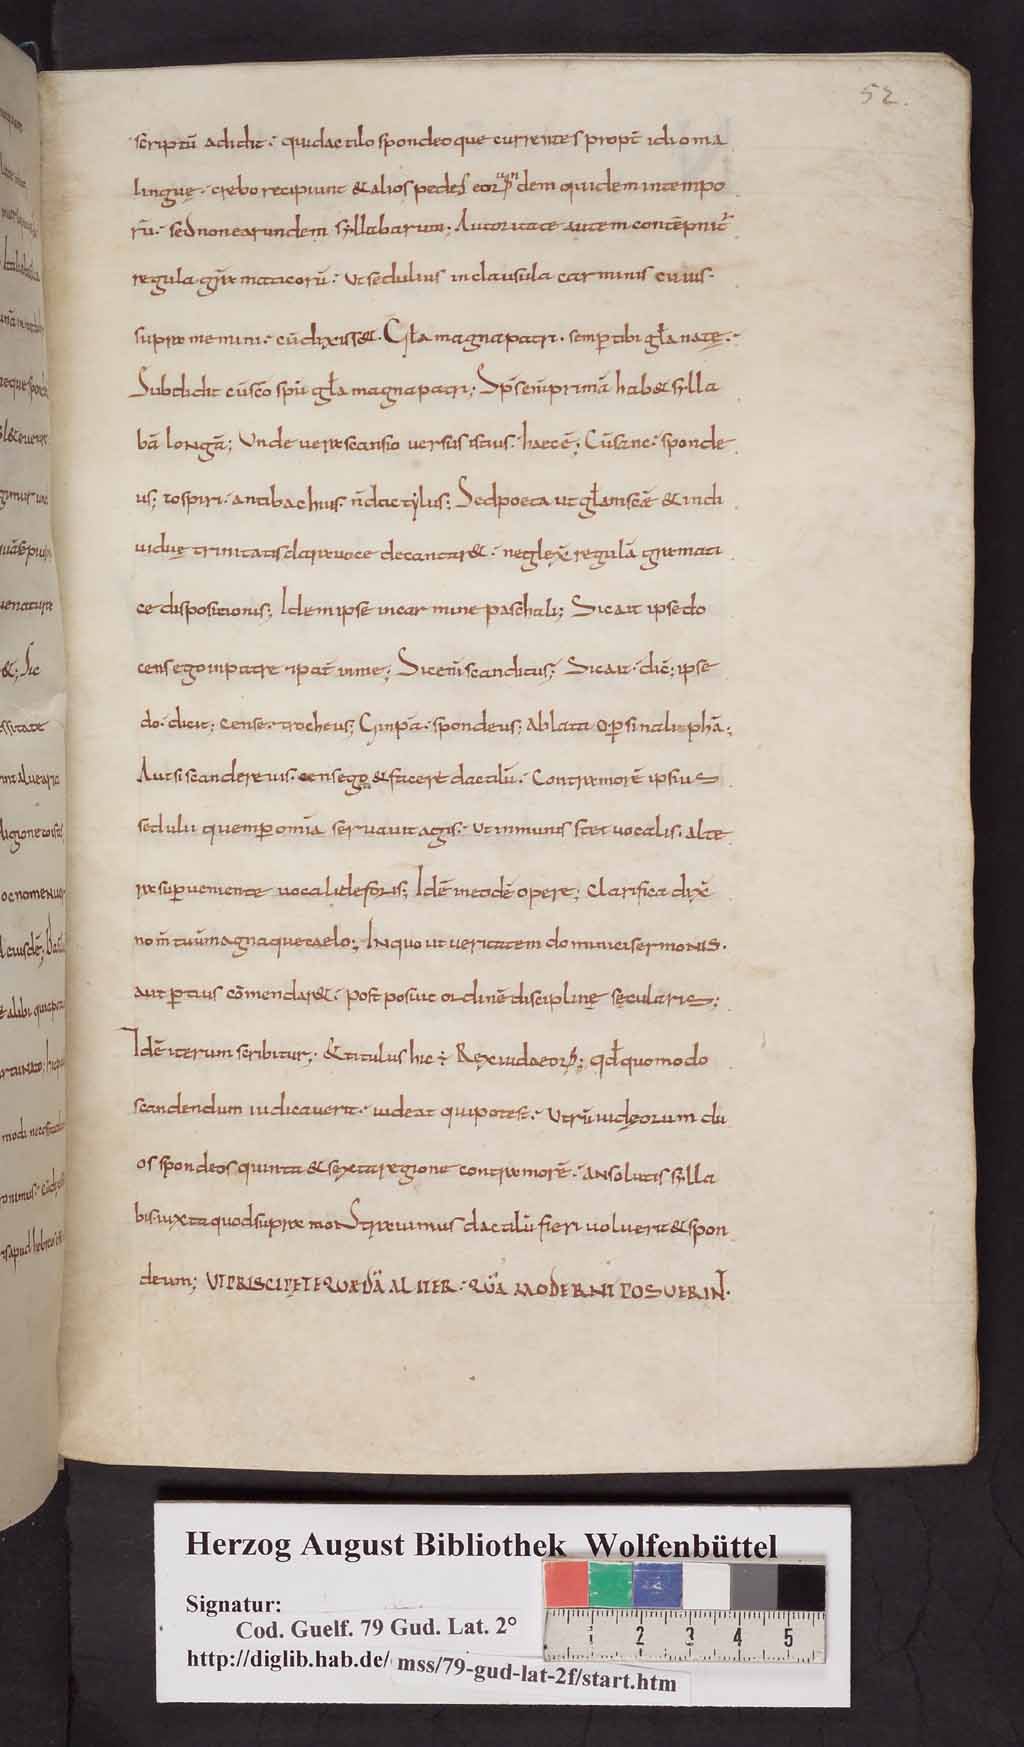 52.
scriptū adidit· qui dactilo spondeoque currentes propt̄ idioma
linguę· crebro recipiunt & alios pedes eorundem quidem in tempo
rū· sed non earundem syllabarum; Autoritate autem contēpnit᷑
regula grāmaticorū· Ut sedulius in clausula carminis cuius·
supra memini· cū dixiss&· Gła magna patri· semp̄ tibi gła nate·
Subdidit cū sc̄o spū gła magna patri; Sps̄ eni primā hab& sylla
bā longā; Unde vera scansio versus istius· haec ē; Cū sanc· sponde
us; to spiri· antibachius· n̄ dactylus; Sed poeta ut głam scæ & indi
uiduę trinitatis clara voce decantar&· neglex̄ regulā gramati
ce dispositionis; Idem ipse in carmine paschali; Sic ait ipse do
cens ego in patre & pat̄ in me; Sic eni scanditus; Sic ait· dic̄; ipse
do· dicit; cense· trocheus; G in pa· spondeus; Ablata o p̄ sinalipha;
Aut si scandere uis· cens ego & facere dactilū· Contra morē ipsius
sedulii quem p̄ omnia servavit agis· Ut inmunis stet vocalis· alte
ra sup̄veniente vocali de foris; Idē in eodē opere; Clarifica dix̄
nom̄ tuū magnaque caelo; In quo ut veritatem dominici sermonis·
apertius cōmendar&· postposuit ordinē disciplinę sęcularis;
Idē iterum scribitur; & titulus hic ÷ Rex iudaeorꝝ; qđ quomodo
scandendum iudicaverit· videat qui potest· Utrū iudęorum du
os spondeos quinta & sexta regione contra morē· an solutis sylla
bis· iuxta quod supra monstravimus dactilū fieri voluerit & spon
deum; UT PRISCI PETE QUÆDĀ ALITER· QUĀ MODERNI POSUERINT·
Herzog August Bibliothek Wolfenbüttel
Signatur:
Cod. Guelf. 79 Gud. Lat. 2°
http://diglib.hab.de/ mss/79-gud-lat-2f/start.htm
1 2 3 4 5